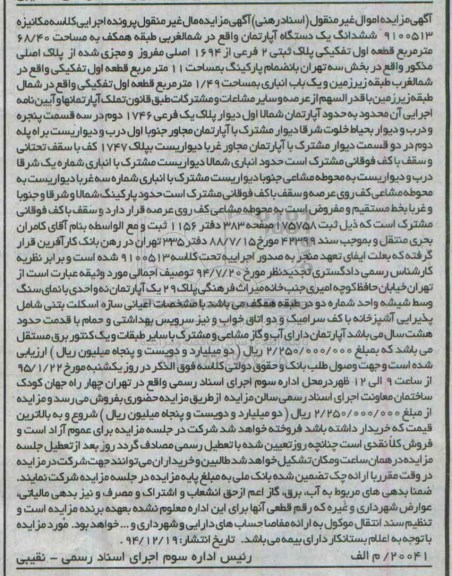 آگهی مزایده اموال غیر منقول (اسناد رهنی) آگهی مزایده مال غیر منقول پرونده اجرایی کلاسه مکانیزه
۹۱۰۰۵۱۳ ششدانگ یک دستگاه آپارتمان واقع در شمالغربی طبقه همکف به مساحت ۶۸/۴۰
مترمربع قطعه اول تفکیکی پلاک ثبتی ۲ فرعی از ۱۶۹۴ اصلی مفروز و مجزی شده از پلاک اصلی
مذکور واقع در بخش سه تهران بانضمام پارکینگ بمساحت ۱۱ متر مربع قطعه اول تفکیکی واقع در
شمالغرب طبقه زیرزمین و یک باب انباری بمساحت ۱/۴۹ مترمربع قطعه اول تفکیکی واقع در شمال
طبقه زیرزمین با قدر السهم از عرصه و سایر مشاعات و مشترکات طبق قانون تملک آپارتمانها و آیین نامه
اجرایی آن محدود به حدود آپارتمان شمالا اول دیوار پلاک یک فرعی ۱۷۴۶ دوم در سه قسمت پنجره
و درب و دیوار بحیاط خلوت شرقا دیوار مشترک با آپارتمان مجاور جنوبا اول درب و دیواریست براه پله
دوم در دو قسمت دیوار مشترک با آپارتمان مجاور غربا دیواریست بپلاک ۱۷۴۷ کف با سقف تحتانی
و سقف با کف فوقانی مشترک است حدود انباری شمالا دیواریست مشترک با انباری شماره یک شرقا
درب و دیواریست به محوطه مشاعی جنوبا دیواریست مشترک با انباری شماره سه غربا دیواریست به
محوطه مشاعی کف روی عرصه و سقف با کف فوقانی مشترک است حدود پارکینگ شمالا و شرقا و جنوبا
و غربا بخط مستقیم و مفروض است به محوطه مشاعی کف روی عرصه قرار دارد و سقف با کف فوقانی
مشترک است که ذیل ثبت ۱۷۵۷۵۸ صفحه ۳۸۳ دفتر ۱۱۵۶ ثبت و مع الواسطه بنام آقای کامران
بحری منتقل و بموجب سند ۴۲۳۹۹ مورخ ۸۸/۷/۱۵ دفتر ۳۳۵ تهران در رهن بانک کارآفرین قرار
گرفته که بعلت ایفای تعهد منجر به صدور اجراییه تحت کلاسه ۹۱۰۰۵۱۳ شده است و برابر نظریه
کارشناس رسمی دادگستری تجدیدنظر مورخ ۹۴/۷/۲۰ توصیف اجمالی مورد وثیقه عبارت است از
تهران خیابان حافظ کوچه امیری جنب خانه میراث فرهنگی پلاک ۲۹ یک آپارتمان نه واحدی با نمای سنگ
وسط شیشه واحد شماره دو در طبقه همکف می باشد با مشخصات اعیانی سازه اسکلت بتنی شامل
پذیرایی آشپزخانه با کف سرامیک و دو اتاق خواب و نیز سرویس بهداشتی و حمام با قدمت حدود
هشت سال می باشد آپارتمان دارای آب و گاز مشاعی و مشترک با سایر طبقات و یک کنتور برق مستقل
می باشد که بمبلغ ۲/۲۵۰/۰۰۰/۰۰۰ ریال (دو میلیارد و دویست و پنجاه میلیون ریال) ارزیابی
شده است و جهت وصول طلب بانک و حقوق دولتی کلاسه فوق الذکر در روز یکشنبه مورخ ۹۵/۱/۲۲
از ساعت ۹ الی ۱۲ ظهر در محل اداره سوم اجرای اسناد رسمی واقع در تهران چهار راه جهان کودک
ساختمان معاونت اجرای اسناد رسمی سالن مزایده از طریق مزایده حضوری بفروش می رسد و مزایده
از مبلغ ۲/۲۵۰/۰۰۰/۰۰۰ ریال (دو میلیارد و دویست و پنجاه میلیون ریال) شروع و به بالاترین
قیمت که خریدار داشته باشد فروخته خواهد شد شرکت در جلسه مزایده برای عموم آزاد است و
فروش کلا نقدی است چنانچه روز تعیین شده با تعطیل رسمی مصادف گردد روز بعد از تعطیل جلسه
مزایده در همان ساعت و مکان تشکیل خواهد شد طالبین و خریداران می توانند جهت شرکت در مزایده
در وقت مقرر با ارائه چک تضمین شده بانک ملی به مبلغ پایه مزایده در جلسه مزایده شرکت نمایند.
ضمنا بدهی های مربوط به آب، برق، گاز اعم از حق انشعاب و اشتراک و مصرف و نیز بدهی مالیاتی،
عوارض شهرداری و غیره که رقم قطعی آنها برای این اداره معلوم نشده بعهده برنده مزایده است و
تنظیم سند انتقال موکول به ارائه مفاصا حساب های دارایی و شهرداری و ... خواهد بود. مورد مزایده
با توجه به اعلام بستانکار دارای بیمه می باشد. تاریخ انتشار: ۹۴/۱۲/۱۹
۲۰۰۴۱/ م الف رئیس اداره سوم اجرای اسناد رسمی - نقیبی